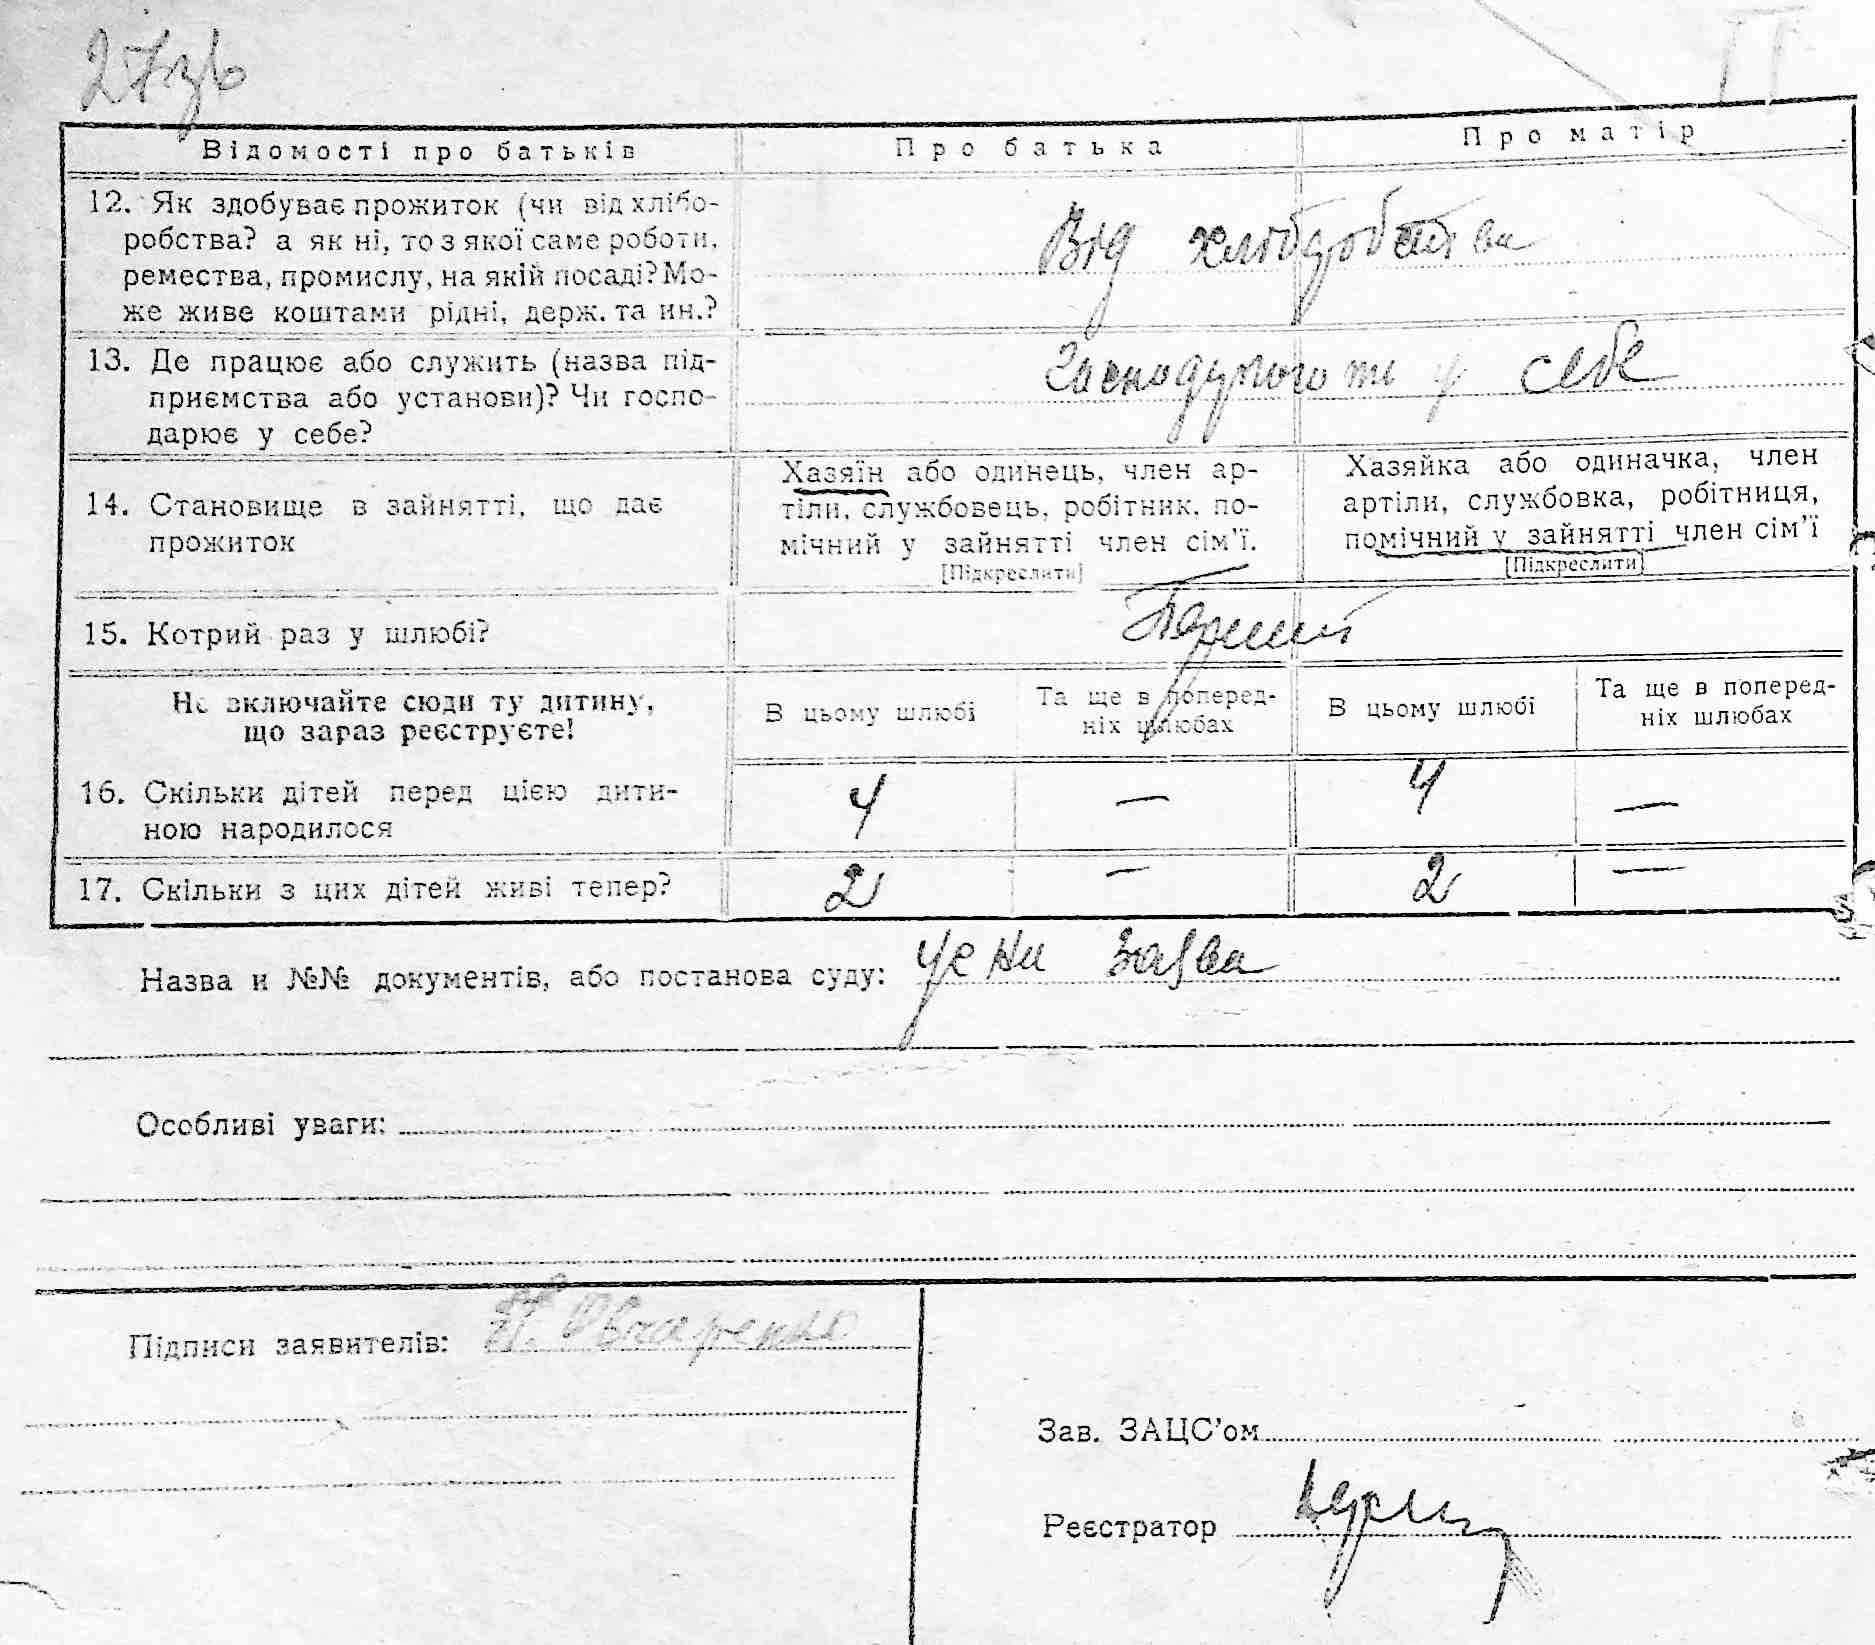 Відомості про батьків
Про батька
Про матір
12. Як здобуває прожиток (чи від хлібо-
робства? а як ні, то з якої саме роботи,
ремества, промислу, на якій посаді? Мо-
же живе коштами рідні, держ. та ин.?
Від хліборобства
13. Де працює або служить (назва під-
приємства або установи)? Чи госпо-
дарює у себе?
у себе
14. Становище в зайнятті, що дає
прожиток
Хазяїн або одинець, член ар-
тіли, службовець, робітник, по-
мічний у зайнятті член сім'ї.
[Підкреслити]
Хазяйка або одиначка, член
артіли, службовка, робітниця,
помічний у зайнятті член сім'ї
[Підкреслити]
15. Котрий раз у шлюбі?
Перший
Не включайте сюди ту дитину,
що зараз реєструєте!
В цьому шлюбі
Та ще в поперед-
ніх шлюбах
В цьому шлюбі
Та ще в поперед-
ніх шлюбах
16. Скільки дітей перед цією дити-
ною народилося
4 — 4 —
17. Скільки з цих дітей живі тепер?
2 — 2 —
Назва и №№ документів, або постанова суду: усна заява
Особливі уваги:
Підписи заявителів: Овчаренко
Зав. ЗАЦС'ом
Реєстратор